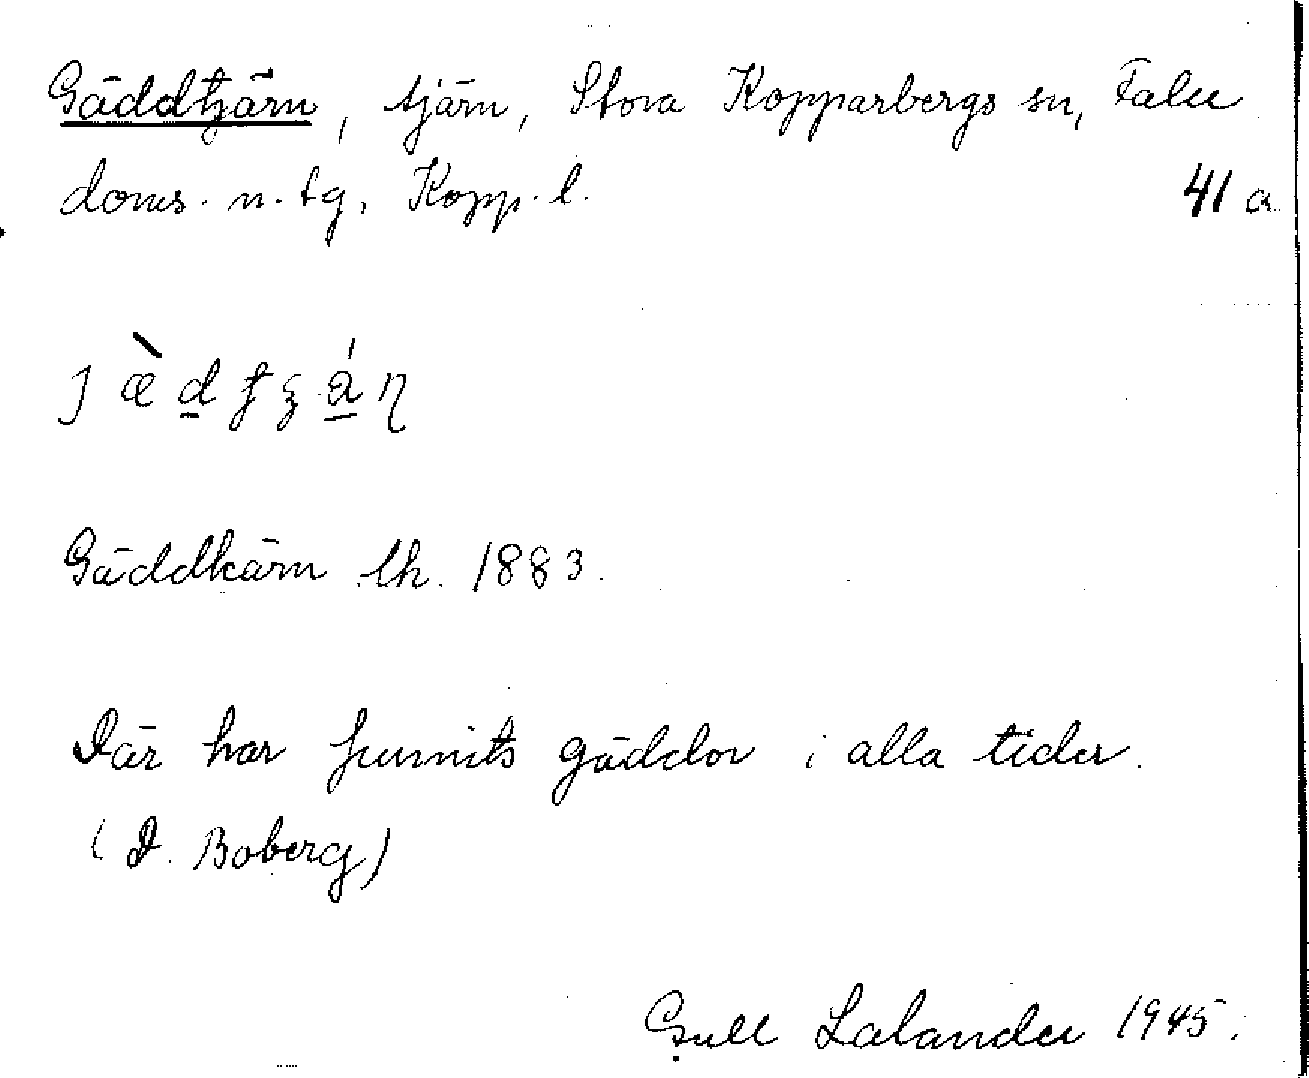 Gäddtjärn, tjärn, Stora Kopparbergs sn, Falu
doms. n. tg, Kopp. l. 41 a
Gäddkärn lh. 1883.
Där har funnits gäddor i alla tider.
(D. Boberg)
Gull Lalander 1945.